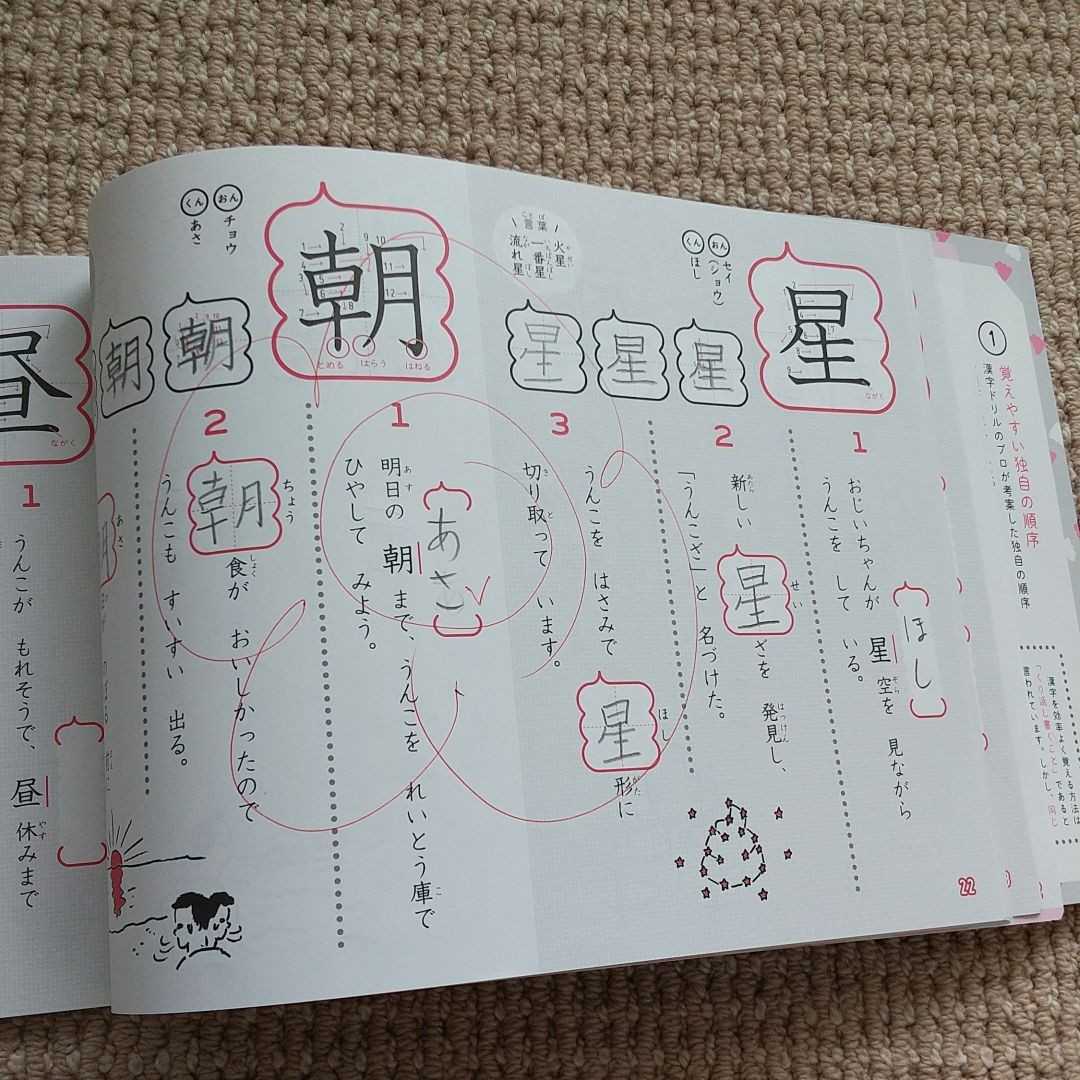 1
覚えやすい独自の順序
漢字ドリルのプロが考案した独自の順序
漢字を効率よく覚える方法は
「くり返し書くこと」であると
言われています。しかし、同じ
星
ながく
おん セイ
(ショウ)
くん ほし
言葉
火星
一番星
流れ星
星
星
星
1
おじいちゃんが 星空を 見ながら
うんこを して いる。
ほし
2
新しい 星ざを 発見し、
「うんこざ」と 名づけた。
3
うんこを はさみで 星形に
切り取って います。
22
朝
とめる
はらう
はねる
おん チョウ
くん あさ
朝
朝
1
明日の 朝まで、うんこを れいとう庫で
ひやして みよう。
あさ
2
朝食が おいしかったので
うんこも すいすい 出る。
昼
ながく
1
うんこが もれそうで、昼休みまで